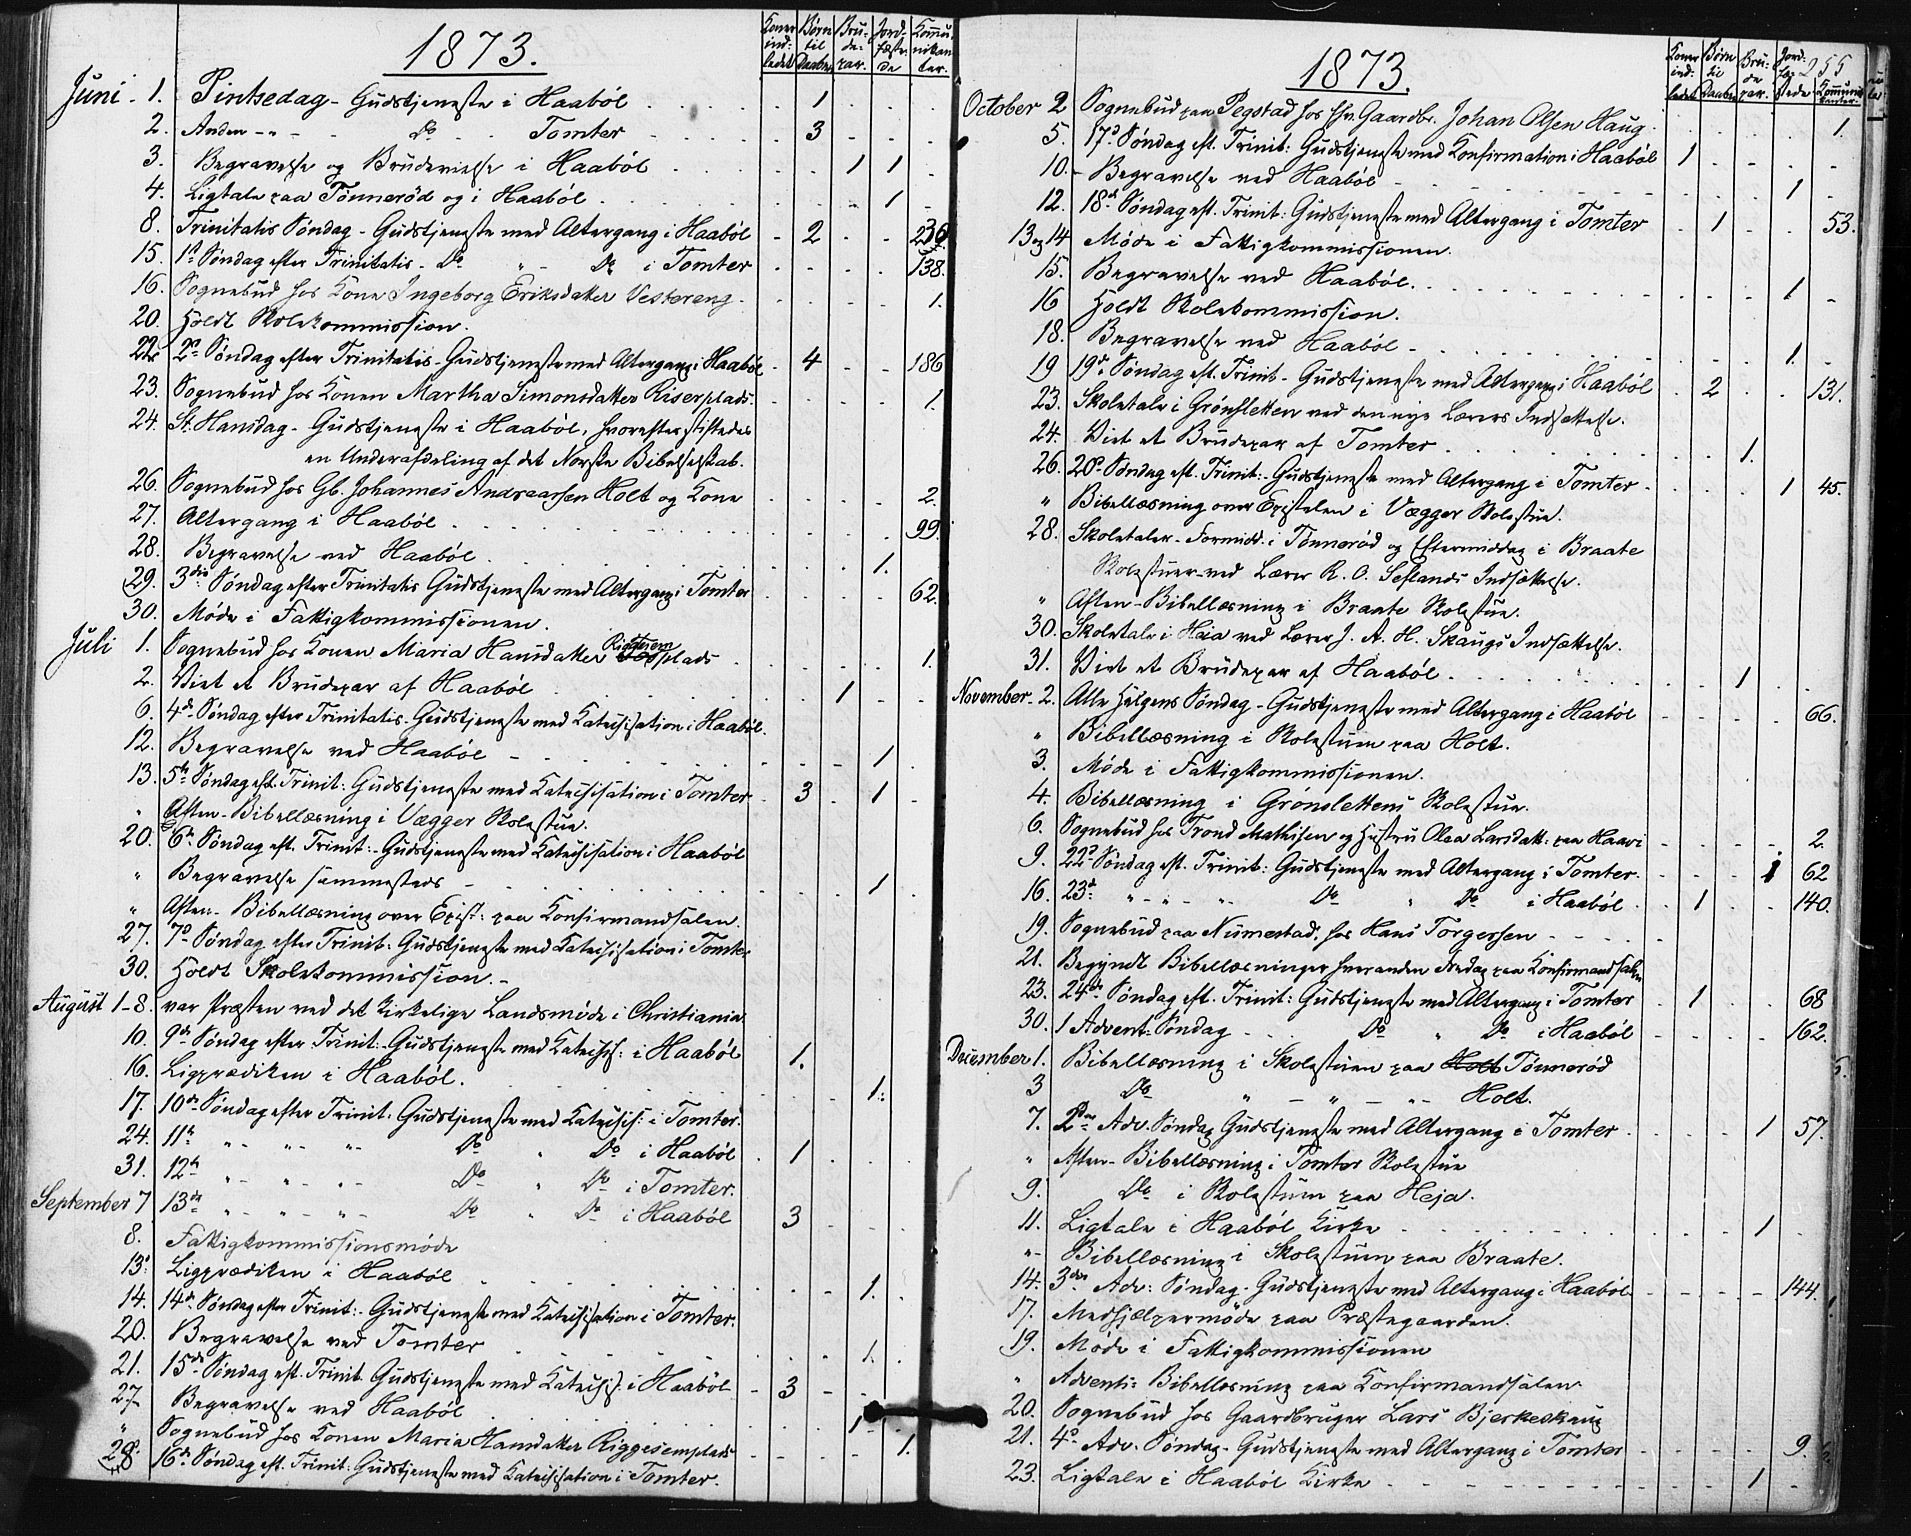 1873.
Koner ind: ledet | Børn til Daaben | Bru- de- par. | Jord- fæste- de | Kommu- nikan- ter.
Juni - 1. Pintsedag - Gudstjeneste i Haabøl 1
2. Anden - „ - Do Tomter 3
3. Begravelse og Brudevielse i Haabøl 1 1
4. Ligtale paa Tønnerød og i Haabøl 1
8. Trinitatis Søndag - Gudstjeneste med Altergang i Haabøl 2
15. 1ste Søndag efter Trinitatis - Do „ - Do i Tomter 138.
16. Sognebud hos Kone Ingeborg Eriksdatter Vestereng. 1.
20. Holdt Skolekommission.
22. 2den Søndag efter Trinitatis - Gudstjeneste med Altergang i Haabøl 4 186
23. Sognebud hos Konen Martha Simonsdatter Riserplads. 1.
24. St. Hansdag - Gudstjeneste i Haabøl, hvorefter stiftedes
en Underafdeling af det Norske Bibelselskab.
26. Sognebud hos Gb. Johannes Andreassen Holt og Kone 2.
27. Altergang i Haabøl 99.
28. Begravelse ved Haabøl 1.
29. 3die Søndag efter Trinitatis Gudstjeneste med Altergang i Tomter 62.
30. Møde i Fattigkommissionen.
Juli 1. Sognebud hos Konen Maria Hansdatter Riggesemplads 1.
2. Viet et Brudepar af Haabøl 1
6. 4de Søndag efter Trinitatis - Gudstjeneste med Katechisation i Haabøl.
12. Begravelse ved Haabøl 1
13. 5te Søndag eft. Trinit: Gudstjeneste med Katechisation i Tomter 3 1
„ Aften - Bibellæsning i Vægger Skolestue.
20. 6te Søndag eft. Trinit: - Gudstjeneste med Katechisation i Haabøl
„ Begravelse sammesteds 1
„ Aften - Bibellæsning over Epist: paa Konfirmandsalen.
27. 7de Søndag efter Trinit: Gudstjeneste med Katechisation i Tomter
30. Holdt Skolekommission. -
August 1-8. var Præsten ved det kirkelige Landsmøde i Christiania
10. 9de Søndag efter Trinit: Gudstjeneste med Katechis: i Haabøl 1.
16. Ligprædiken i Haabøl. 1.
17. 10de Søndag efter Trinit: Gudstjeneste med Katechis: i Tomter.
24. 11te „ „ „ Do „ Do i Haabøl 1
31. 12te „ „ „ Do „ Do i Tomter.
September 7 13de „ „ „ Do „ Do i Haabøl 3
8. Fattigkommissionsmøde
13. Ligprædiken i Haabøl 1.
14. 14de Søndag efter Trinit: - Gudstjeneste med Katechisation i Tomter.
20. Begravelse ved Tomter 1.
21. 15de Søndag eft. Trinit Gudstjeneste med Katechis: i Haabøl 3
27. Begravelse ved Haabøl 1
„ Sognebud hos Konen Maria Hansdatter Riggesemplads 1.
28. 16de Søndag eft. Trinit: Gudstjeneste med Katechisation i Tomter.
1873.
255
Koner ind: ledet | Børn til Daaben | Bru- de par. | Jord- fæ- stede | Kommuni- kanter.
October 2 Sognebud paa Pegstad hos Gaardbr. Johan Olsen Haug. 1.
5. 17de Søndag eft. Trinit: Gudstjeneste med Konfirmation i Haabøl 1
10. Begravelse ved Haabøl 1
12. 18de Søndag eft. Trinit: Gudstjeneste med Altergang i Tomter 1 53.
13 og 14 Møde i Fattigkommissionen.
15. Begravelse ved Haabøl. 1
16 Holdt Skolekommission.
18. Begravelse ved Haabøl 1.
19 19de Søndag eft. Trinit - Gudstjeneste med Altergang i Haabøl 2 131.
23. Skoletale i Grønsletten ved den nye Lærers Indsættelse.
24. Viet et Brudepar af Tomter 1.
26. 20de Søndag eft. Trinit: - Gudstjeneste med Altergang i Tomter 1 45.
„ Bibellæsning over Epistelen i Vægger Skolestue.
28. Skoletaler - Formidd. i Tønnerød og Eftermiddag i Braate
Skolestuer ved Lærer R. O. Seflands Indsættelse.
„ Aften - Bibellæsning i Braate Skolestue.
30. Skoletale i Heia ved Lærer J. A. H. Skaugs Indsættelse.
31. Viet et Brudepar af Haabøl 1
November - 2. Alle Helgens Søndag - Gudstjeneste med Altergang i Haabøl 66.
„ Bibellæsning i Skolestuen paa Holt.
3. Møde i Fattigkommissionen.
4. Bibellæsning i Grønslettens Skolestue.
6. Sognebud hos Trond Mathisen og Hustru Olea Larsdatt: paa Haavi 2.
9. 22de Søndag eft. Trinit: Gudstjeneste med Altergang i Tomter 1 62
16. 23de „ „ „ Do „ Do i Haabøl 1 140.
19. Sognebud paa Numestad, hos Hans Torgersen
21. Begyndt Bibellæsninger hveranden Fredag paa Konfirmandsalen
23. 24de Søndag eft. Trinit: Gudstjeneste med Altergang i Tomter 1 68
30. 1 Advent-Søndag Do „ Do i Haabøl 162.
December 1. Bibellæsning i Skolestuen paa Holt Tønnerød
3 Do „ - „ - „ Holt.
7. 2den Adv. Søndag Gudstjeneste med Altergang i Tomter 1 57.
„ Aften - Bibellæsning i Tomter Skolestue
9. Do i Skolestuen paa Heja.
11. Ligtale i Haabøl Kirke 1
„ Bibellæsning i Skolestuen paa Braate.
14. 3die Adv: Søndag. Gudstjeneste med Altergang i Haabøl 144.
17. Medhjælpermøde paa Præstegaarden.
19. Møde i Fattigkommissionen
„ Advents: Bibellæsning paa Konfirmandsalen
20. Sognebud hos Gaardbruger Lars Bjerkeskaug
21. 4de Adv. Søndag - Gudstjeneste med Altergang i Tomter 9.
23. Ligtale i Haabøl Kirke 1